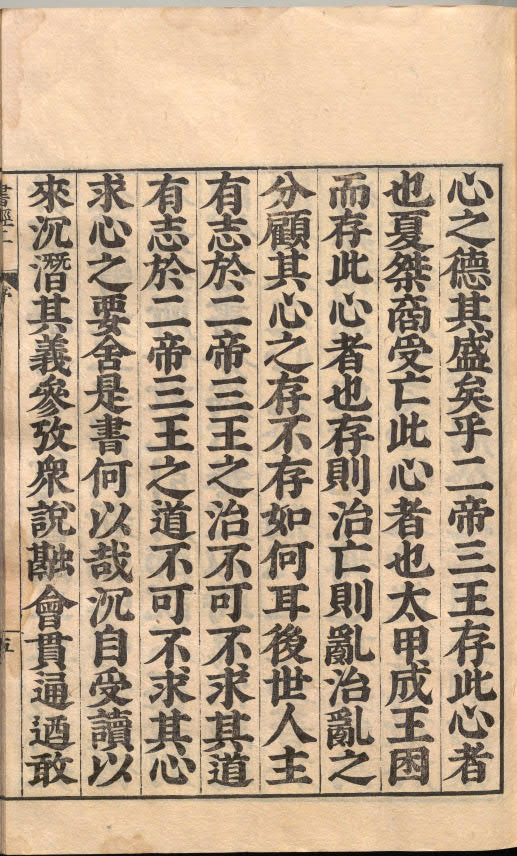 心之德其盛矣乎二帝三王存此心者
也夏桀商受亡此心者也太甲成王困
而存此心者也存則治亡則亂治亂之
分顧其心之存不存如何耳後世人主
有志於二帝三王之治不可不求其道
有志於二帝三王之道不可不求其心
求心之要舍是書何以哉沉自受讀以
來沉潛其義參攷衆說融會貫通迺敢